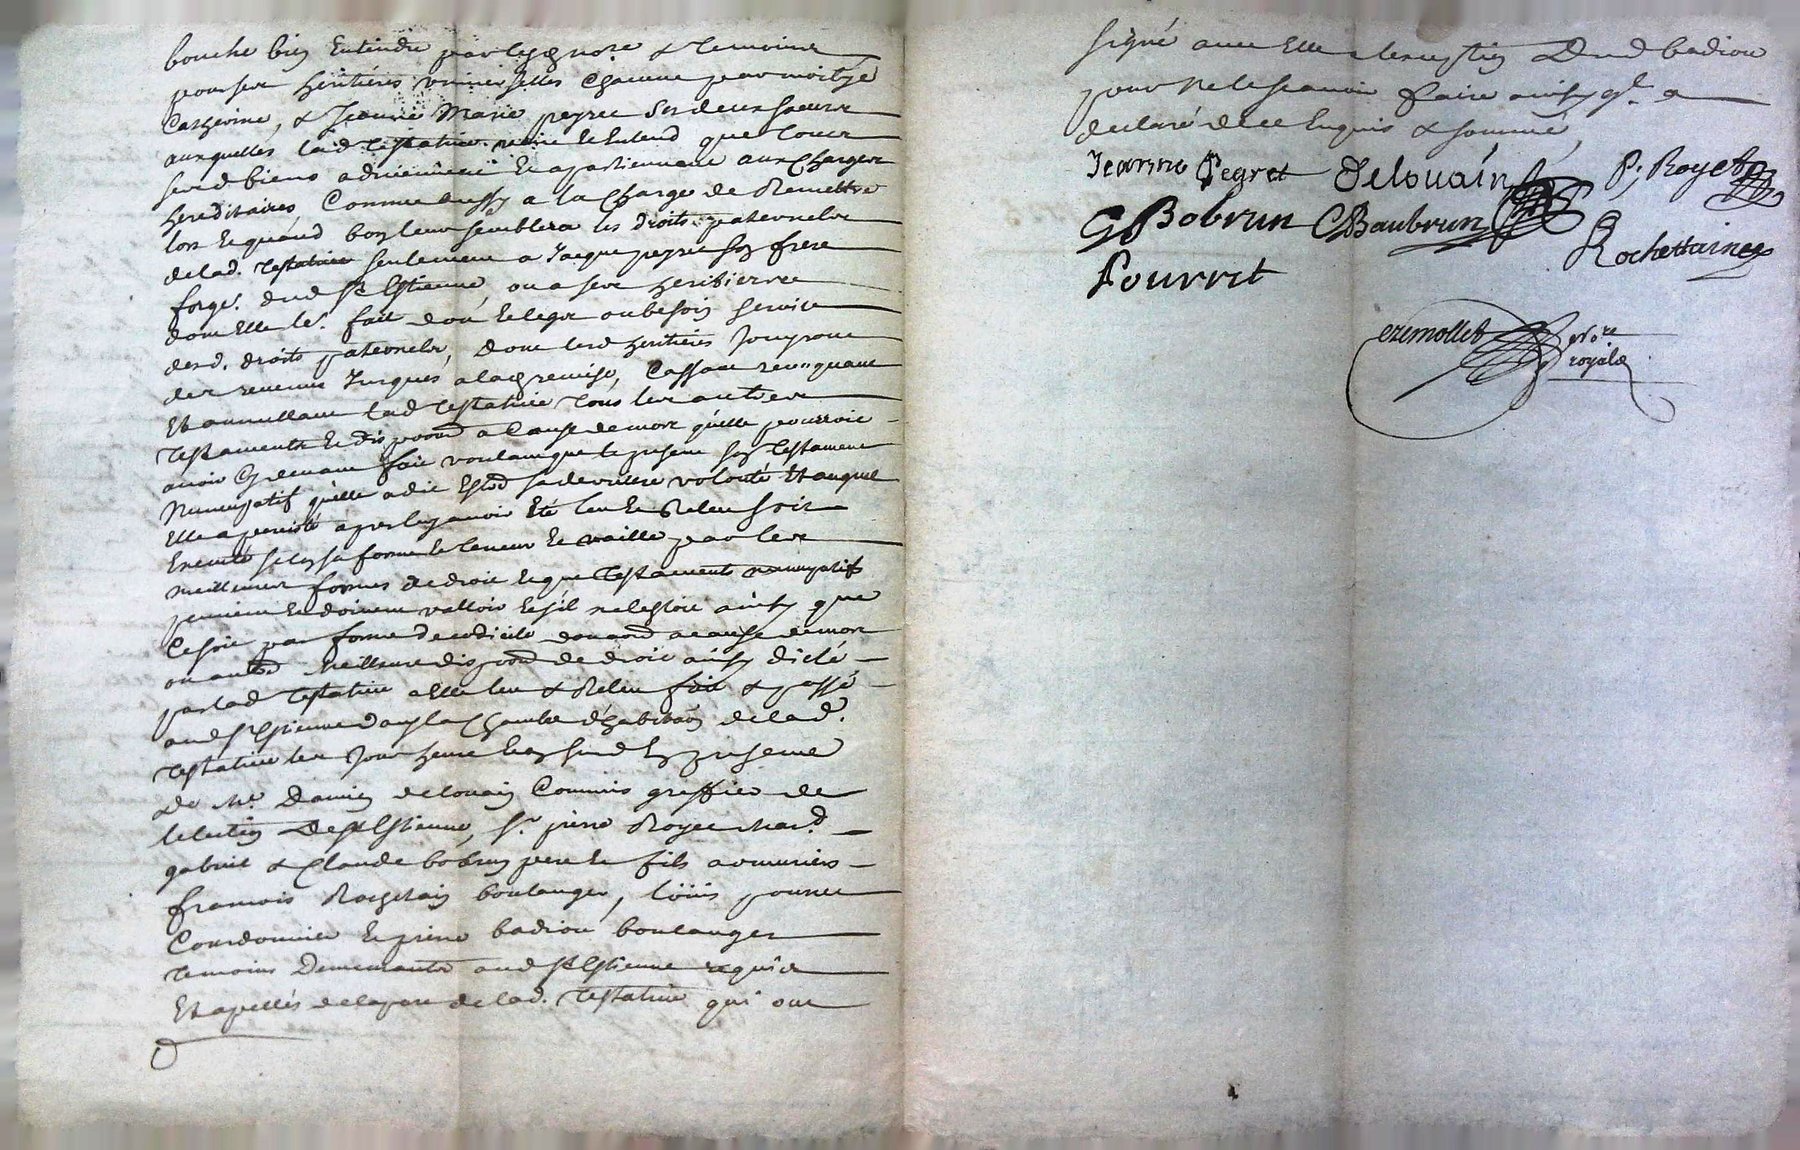 bouche bien Entendre par lesd nore & temoins
pour ses héritières universelles chacune par moityé
Catherine, & Jeanne Marie peyret ses deux soeurs
auxquelles lad testatrice veut Et Entend que tous
sesd biens adviennent Et apartiennent aux charges
hereditaires, Comme aussy a la charge de Remettre
lors Et quand bon leur semblera les droits paternels
de lad. testatrice seulement a Jacque peyret son frere
forgr. dud St Estienne, ou a ses heritiers
dont Elle le. fait don Et legs au besoin
desd. droits paternels, dont lesd heritières Jouyront
des revenus Jusques a lad remise, Cassant revoquant
Et annullant lad testatrice tous les autres
testaments Et dispoond a Cause de mort qu'elle pourroit
avoir Cy devant fait voulant que le present son testament
Nuncupatif qu'elle a dit Estre sa derniere volonté Et auquel
Elle a persisté apres luy avoir Eté leu Et Releu soit
Executé selon sa forme Et teneur Et vaille par les
meilleures formes de droit Et que testaments nuncupatifs
peuvent Et doivent valloir Et s'il ne l'estoit ainsy que
Ce soit par forme de codicile donaond a cause de mort
ou autre meilleure dispoond de droit ainsy dicté
par lad testatrice a Elle leu & Releu fait & passé
aud St Estienne dans la Chambre d'habitaon de lad.
testatrice les Jour heure Et an susd En presence
De Me. Damien delouain Commis greffier de
lelection De St Estienne, Sr. pierre Royet mard.
gabriel & Claude bobrun pere Et fils armuriers
francois Rochetain boulanger, loüis pourret
Courdonnier Et pierre badiou boulanger
temoins Demeurants aud St Estienne requis
Et apellés de la part de lad. testatrice qui ont
signé avec Elle Dud badiou
pour ne le scavoir faire ainsy ql. a
declaré de ce Enquis & sommé
Jeanne Peyret Delouain P. Royet
G Bobrun C Baubrun
Rochettain
Pourret
ezemollet nore
royal